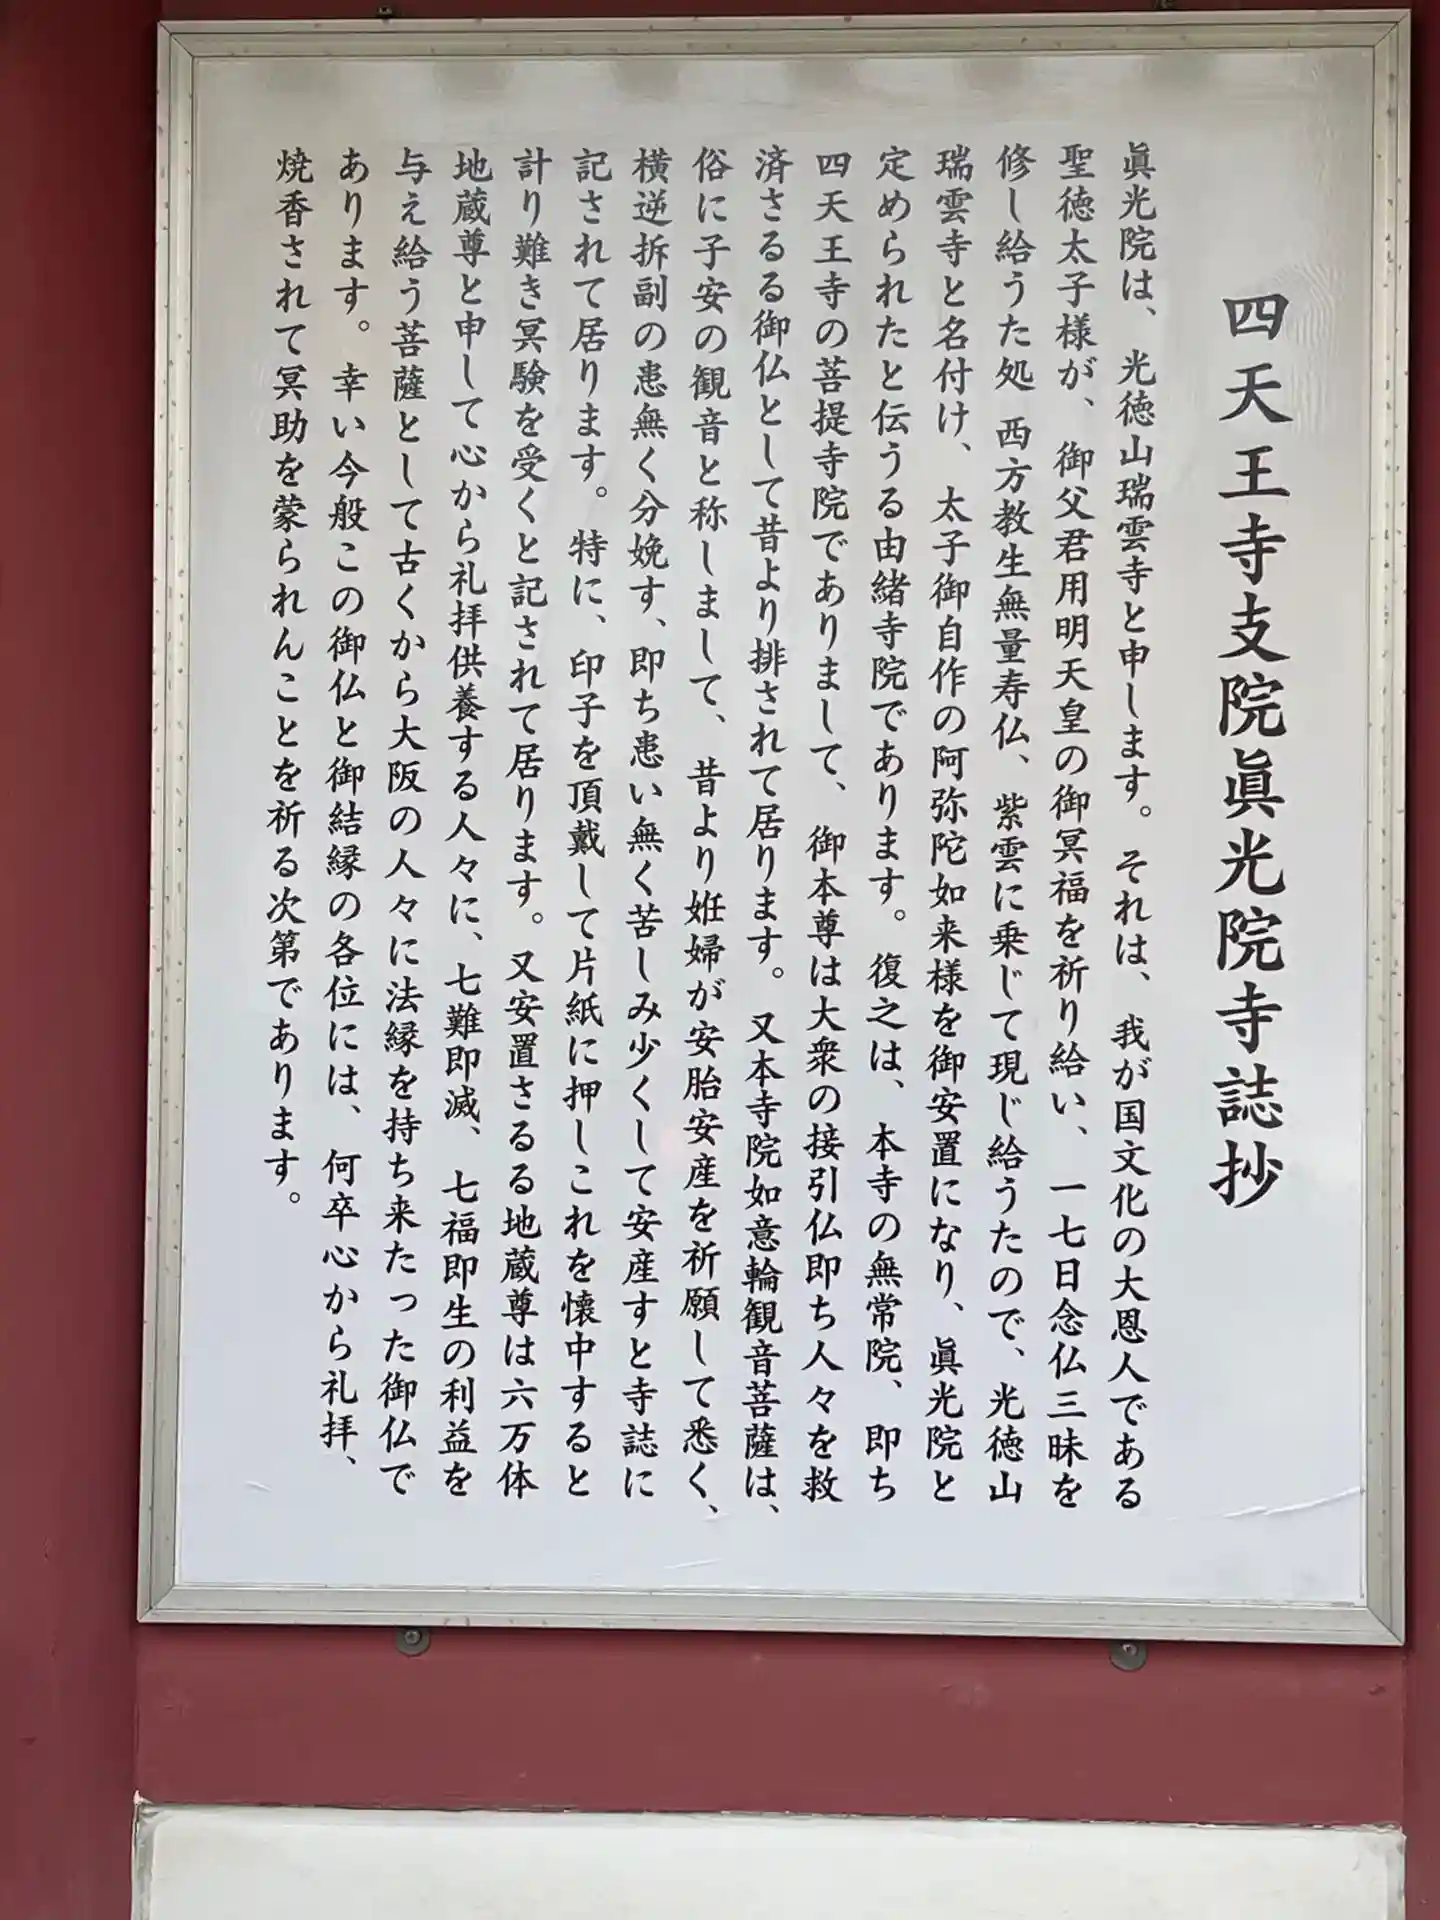 四天王寺支院眞光院寺誌抄
眞光院は、光徳山瑞雲寺と申します。それは、我が国文化の大恩人である
聖徳太子様が、御父君用明天皇の御冥福を祈り給い、一七日念仏三昧を
修し給うた処 西方教生無量寿仏、紫雲に乗じて現じ給うたので、光徳山
瑞雲寺と名付け、太子御自作の阿弥陀如来様を御安置になり、眞光院と
定められたと伝うる由緒寺院であります。復之は、本寺の無常院、即ち
四天王寺の菩提寺院でありまして、御本尊は大衆の接引仏即ち人々を救
済さるる御仏として昔より排されて居ります。又本寺院如意輪観音菩薩は、
俗に子安の観音と称しまして、昔より姙婦が安胎安産を祈願して悉く、
横逆拆副の患無く分娩す、即ち患い無く苦しみ少くして安産すと寺誌に
記されて居ります。特に、印子を頂戴して片紙に押しこれを懐中すると
計り難き冥験を受くと記されて居ります。又安置さるる地蔵尊は六万体
地蔵尊と申して心から礼拝供養する人々に、七難即滅、七福即生の利益を
与え給う菩薩として古くから大阪の人々に法縁を持ち来たった御仏で
あります。幸い今般この御仏と御結縁の各位には、何卒心から礼拝、
焼香されて冥助を蒙られんことを祈る次第であります。